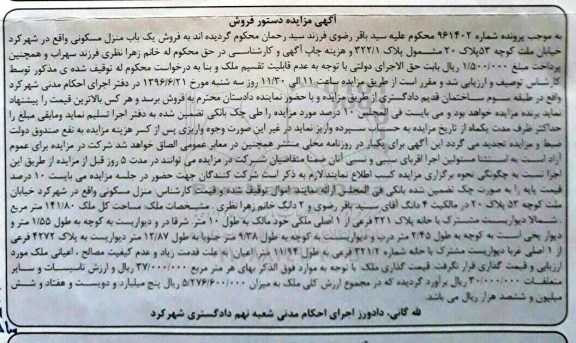 آگهی مزایده دستور فروش
به موجب پرونده شماره ۹۶۱۴۰۲ محکوم علیه سید باقر رضوی فرزند سید رحمان محکوم گردیده اند به فروش یک باب منزل مسکونی واقع در شهرکرد
خیابان ملت کوچه ۵۳پلاک ۲۰ مشمول پلاک ۳۲۲/۱ و هزینه چاپ آگهی و کارشناسی در حق محکوم له خانم زهرا نظری فرزند سهراب و همچنین
پرداخت مبلغ ۱/۵۰۰/۰۰۰ ریال بابت حق الاجرای دولتی با توجه به عدم قابلیت تقسیم ملک و بنا به درخواست محکوم له توقیف شده ی مذکور توسط
کارشناس توصیف و ارزیابی شد و مقرر است از طریق مزایده ساعت ۱۱ الی ۱۱/۳۰ روز سه شنبه مورخ ۱۳۹۶/۶/۲۱ در دفتر اجرای احکام مدنی شهرکرد
واقع در طبقه سوم ساختمان قدیم دادگستری از طریق مزایده و با حضور نماینده دادستان محترم به فروش برسد و هر کس بالاترین قیمت را پیشنهاد
نماید برنده مزایده خواهد بود و می بایست فی المجلس ۱۰ درصد مورد مزایده را طی چک بانکی تضمین شده به دفتر اجرا تسلیم نماید ومابقی مبلغ را
حداکثر ظرف مدت یکماه از تاریخ مزایده به حساب سپرده واریز نماید در غیر این صورت وجوه واریزی پس از کسر هزینه مزایده به نفع صندوق دولت
ضبط و مزایده تجدید می گردد این آگهی برای یکبار در روزنامه محلی منتشر همچنین در معابر عمومی الصاق خواهد شد شرکت در مزایده برای عموم
آزاد است به استثنا مسئولین اجرا اقربای سببی و نسبی آنان ضمنا متقاضیان شرکت در مزایده می توانند در مدت ۵ روز قبل از مزایده از طریق این
اجرا نسبت به چگونگی نحوه برگزاری مزایده کسب اطلاع نمایند.لازم به ذکر است شرکت کنندگان جهت حضور در جلسه مزایده می بایست ۱۰ درصد
قیمت پایه را به صورت چک تضمین شده بانکی فی المجلس ارائه نمایند. اموال توقیف شده وقیمت کارشناس: منزل مسکونی واقع در شهرکرد خیابان
ملت کوچه ۵۳ پلاک ۲۰ در مالکیت ۴ دانگ آقای سید باقر رضوی و ۲ دانگ خانم زهرا نظری . مشخصات ملک: مساحت کل ملک ۱۴۱/۸۰ متر مربع
. شمالا دیواریست مشترک با خانه پلاک ۳۲۱ فرعی از ۱ اصلی ملکی خود مالک به طول ۱۰ متر. شرقا در و دیواریست به کوچه به طول ۱/۵۵ متر و
دیوار یخی است به کوچه به طول ۲/۴۵ متر درب و دیواریست به کوچه به طول ۹/۳۸ متر جنوبا به طول ۱۲/۸۷ متر دیواریست به پلاک ۴۲۷۲ فرعی
از ۱ اصلی غربا دیواریست مشترک با خانه شماره ۳۲۱/۲ فرعی به طول ۱۱/۹۴ متر اعیان به علت قدمت زیاد و عدم کیفیت مصالح ، اعیانی ملک مورد
ارزیابی و قیمت گذاری قرار نگرفت قیمت گذاری ملک با توجه به موارد فوق الذکر بهای هر متر مربع ۳۷/۰۰۰/۰۰۰ ریال و ارزش تاسیسات و سایر
متعلقات ۳۰/۰۰۰/۰۰۰ ریال برآورد گردیده که در مجموع ارزش کلی ملک به میزان ۵/۲۷۶/۶۰۰/۰۰۰ ریال پنج میلیارد و دویست و هفتاد و شش
میلیون و ششصد هزار ریال می باشد.
لله گانی، دادورز اجرای احکام مدنی شعبه نهم دادگستری شهرکرد